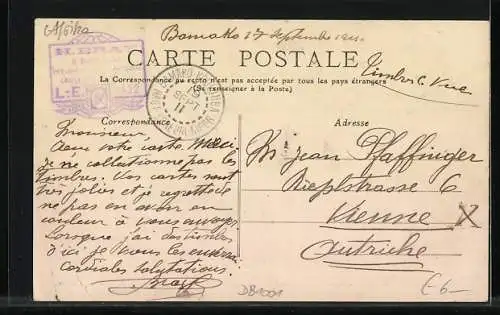 Afrika
Bamako 17 Septembre 1911
CARTE POSTALE
La Correspondance au recto n'est pas acceptée par tous les pays étrangers
(Se renseigner à la Poste)
Timbres c. Vue
Correspondance
Adresse
Monsieur,
votre carte. Merci,
je ne collectionne pas les
timbres. Vos cartes sont
très jolies et je regrette de
ne pas en avoir en
couleur à vous envoyer
Lorsque j'ai des timbres
d'ici je vous les enverrai
Cordiales Salutations.
M Jean Pfaffinger
strasse 6
Vienne
Autriche
X
DB1001
€ 6-